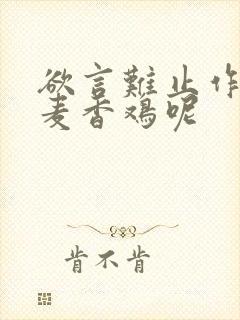 欲言難止作
麦香鸡呢
肯不肯